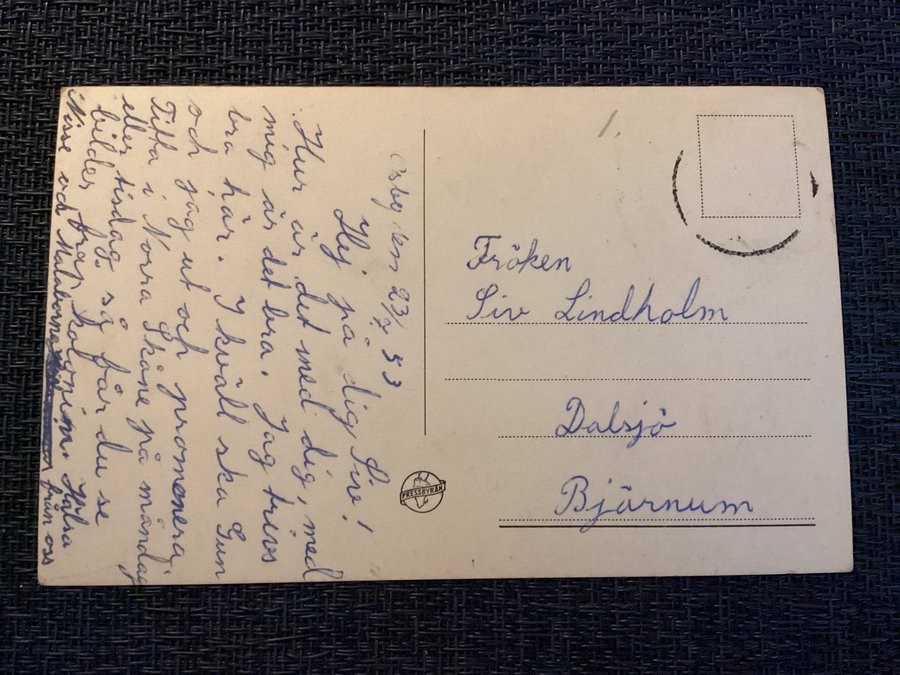 Osby den 23/7 53
Hej på dig Siv!
Hur är det med dig, med
mig är det bra. Jag trivs
bra här. I kväll ska Gun
och jag ut och promenera,
Titta i Norra Skåne på måndag
eller tisdag så får du se
bilder från kolonin. Hälsa
Nisse och från oss
Fröken
Siv Lindholm
Dalsjö
Bjärnum
PRESSBYRÅN